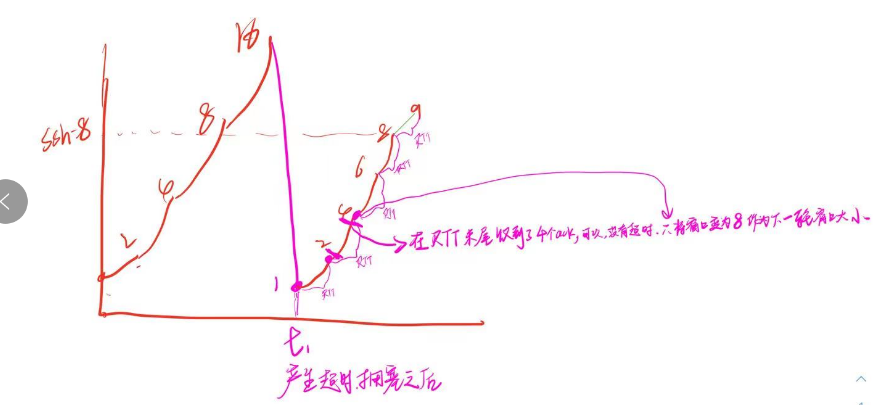 16
8
ssh=8
4
2
9
8
RTT
RTT
6
RTT
4
2
RTT
RTT
1
在RTT末尾收到了4个ack,可以,没有超时,将窗口变为8作为下一轮窗口大小
t1
产生超时拥塞之后